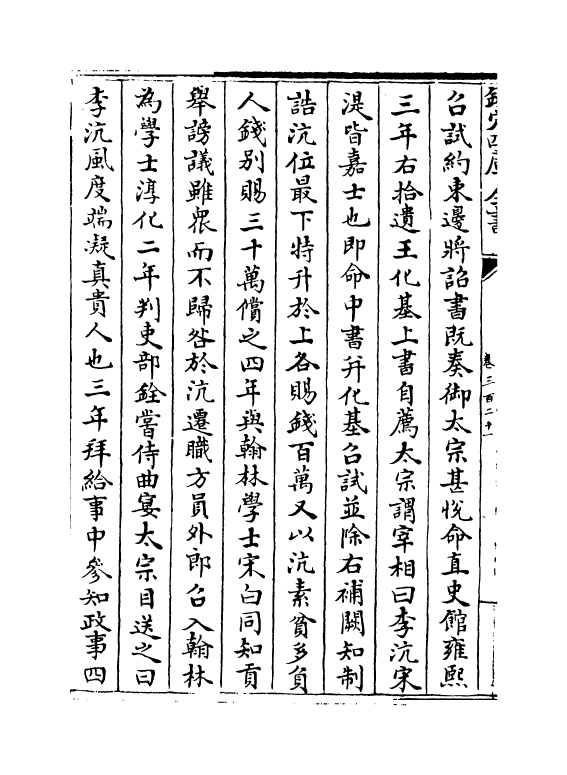 欽定四庫全書
卷三百二十一
召試約束邊將詔書既奏御太宗甚悅命直史館雍熙
三年右拾遺王化基上書自薦太宗謂宰相曰李沆宋
湜皆嘉士也即命中書并化基召試並除右補闕知制
誥沆位最下特升於上各賜錢百萬又以沆素貧多負
人錢别賜三十萬償之四年與翰林學士宋白同知貢
舉謗議雖衆而不歸咎於沆遷職方員外郎召入翰林
為學士淳化二年判吏部銓嘗侍曲宴太宗目送之曰
李沆風度端凝真貴人也三年拜給事中參知政事四